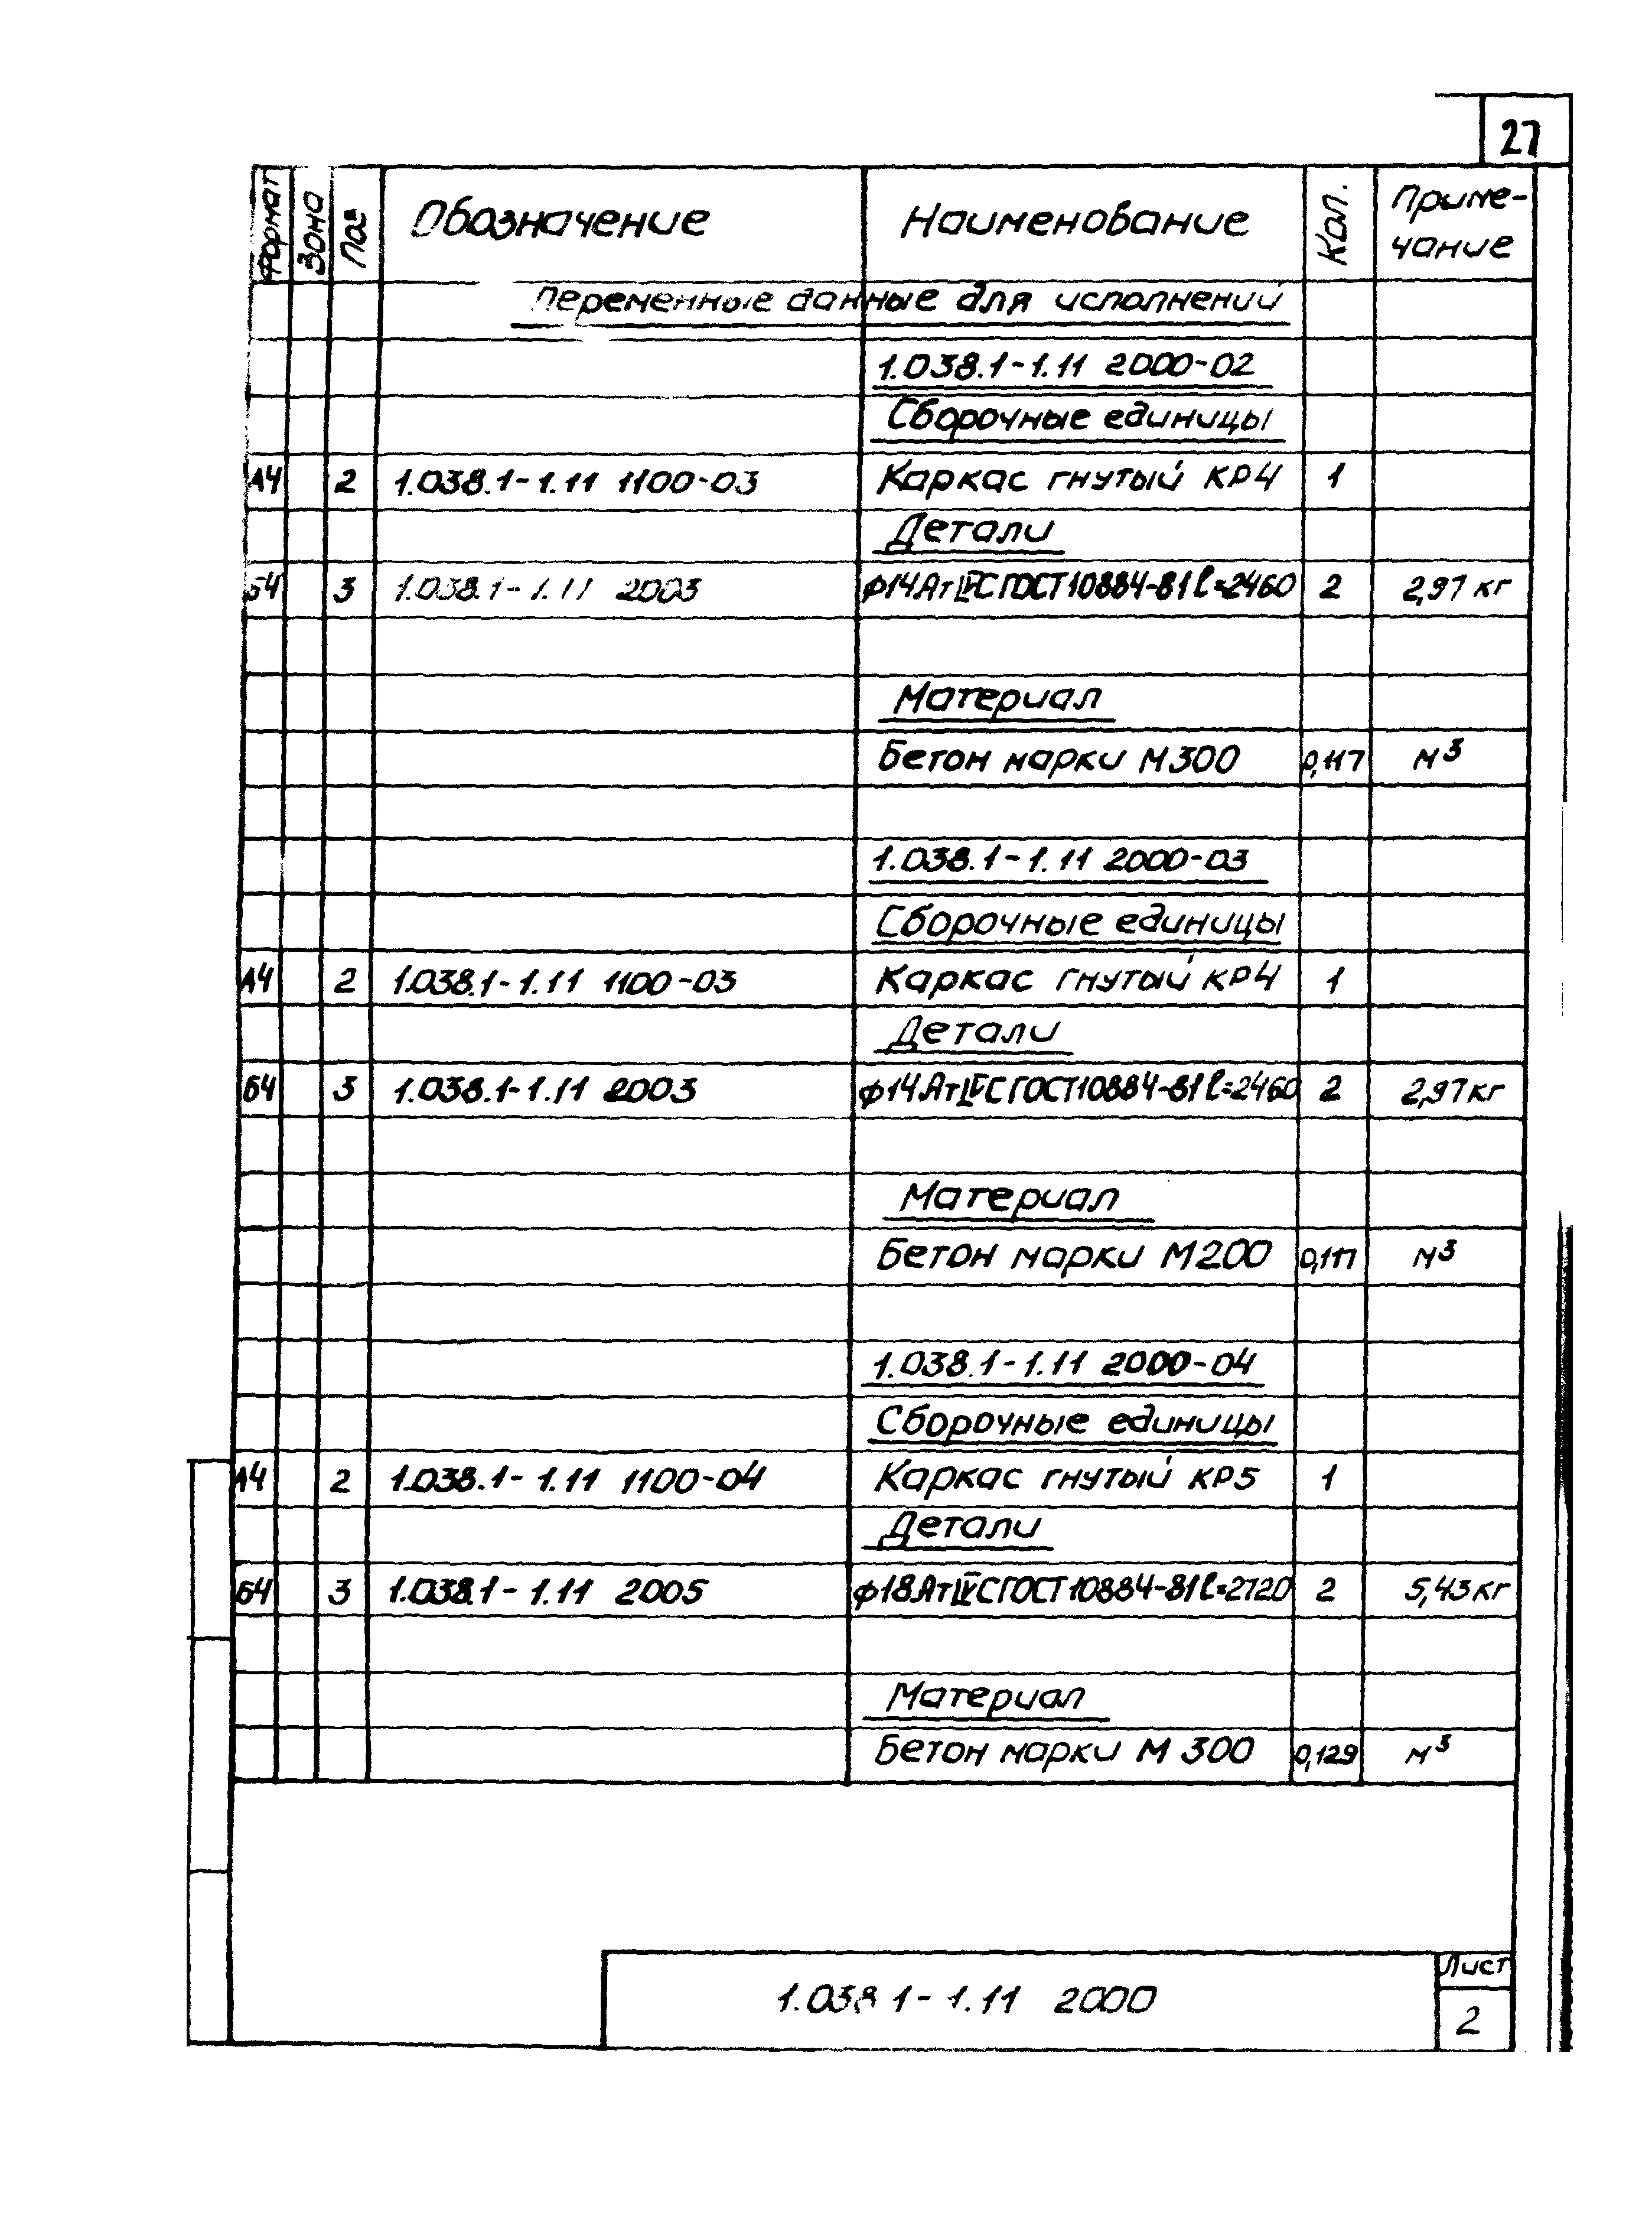 27
Формат Зона Поз Обозначение Наименование Кол. Приме-
чание
Переменные данные для исполнений
1.038.1-1.11 2000-02
Сборочные единицы
А4 2 1.038.1-1.11 1100-03 Каркас гнутый КР4 1
Детали
Б4 3 1.038.1-1.11 2003 ф14АтIVС ГОСТ10884-81 l=2460 2 2,97 кг
Материал
Бетон марки М300 0,117 м³
1.038.1-1.11 2000-03
Сборочные единицы
А4 2 1.038.1-1.11 1100-03 Каркас гнутый КР4 1
Детали
Б4 3 1.038.1-1.11 2003 ф14АтIVС ГОСТ10884-81 l=2460 2 2,97кг
Материал
Бетон марки М200 0,117 м³
1.038.1-1.11 2000-04
Сборочные единицы
А4 2 1.038.1-1.11 1100-04 Каркас гнутый КР5 1
Детали
Б4 3 1.038.1-1.11 2005 ф18АтIVС ГОСТ10884-81 l=2720 2 5,43кг
Материал
Бетон марки М 300 0,129 м³
Лист
1.038 1-1.11 2000
2